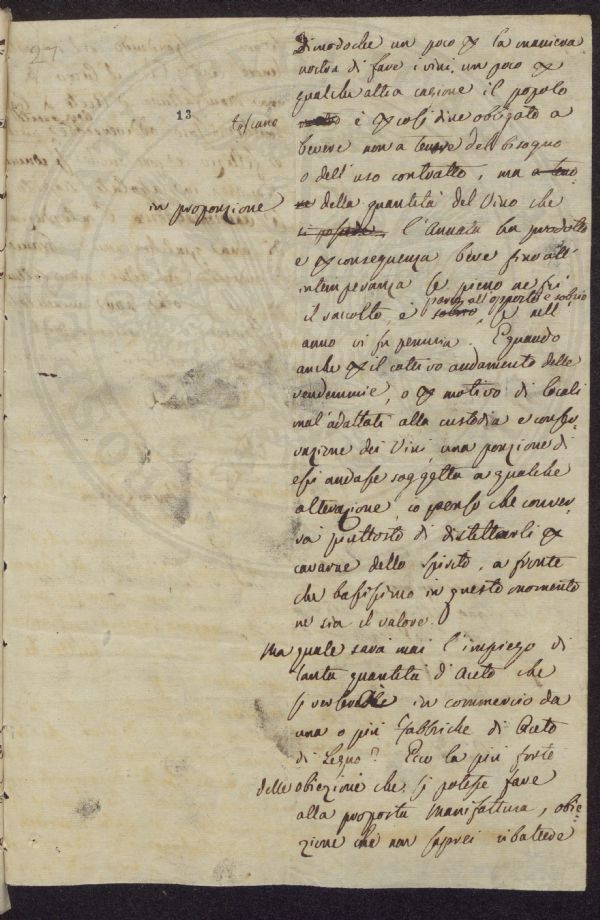 27
13
Dimodoche un poco p la maniera
nostra di fare i vini, un poco p
qualche altra cagione il popolo
toscano
è p così dire obligato a
bevere non a tenore del bisogno
o dell'uso contratto, ma a teno-
in proporzione
re della quantità del Vino che
si possede, l'Annata ha prodotto
e p conseguenza beve fino all'
intemperanza se pieno ne fu
parco all'opposto e sobrio
il raccolto, è sobrio se nell'
anno vi fu penuria. E quando
anche p il cattivo andamento delle
vendemmie, o p motivo di locali
mal'adattati alla custodia e conser-
vazione dei Vini, una porzione di
essi andasse soggetta a qualche
alterazione, io penso che conver-
rà piuttosto di distillarli p
cavarne dello Spirito, a fronte
che bassissimo in questo momento
ne sia il valore.
Ma quale sarà mai l'impiego di
tanta quantità d'Aceto che
si verserebbe in commercio da
una o più Fabbriche di Aceto
di Legno? Ecco la più forte
delle obiezione che si potesse fare
alla proposta Manifattura, obie-
zione che non saprei ribattere